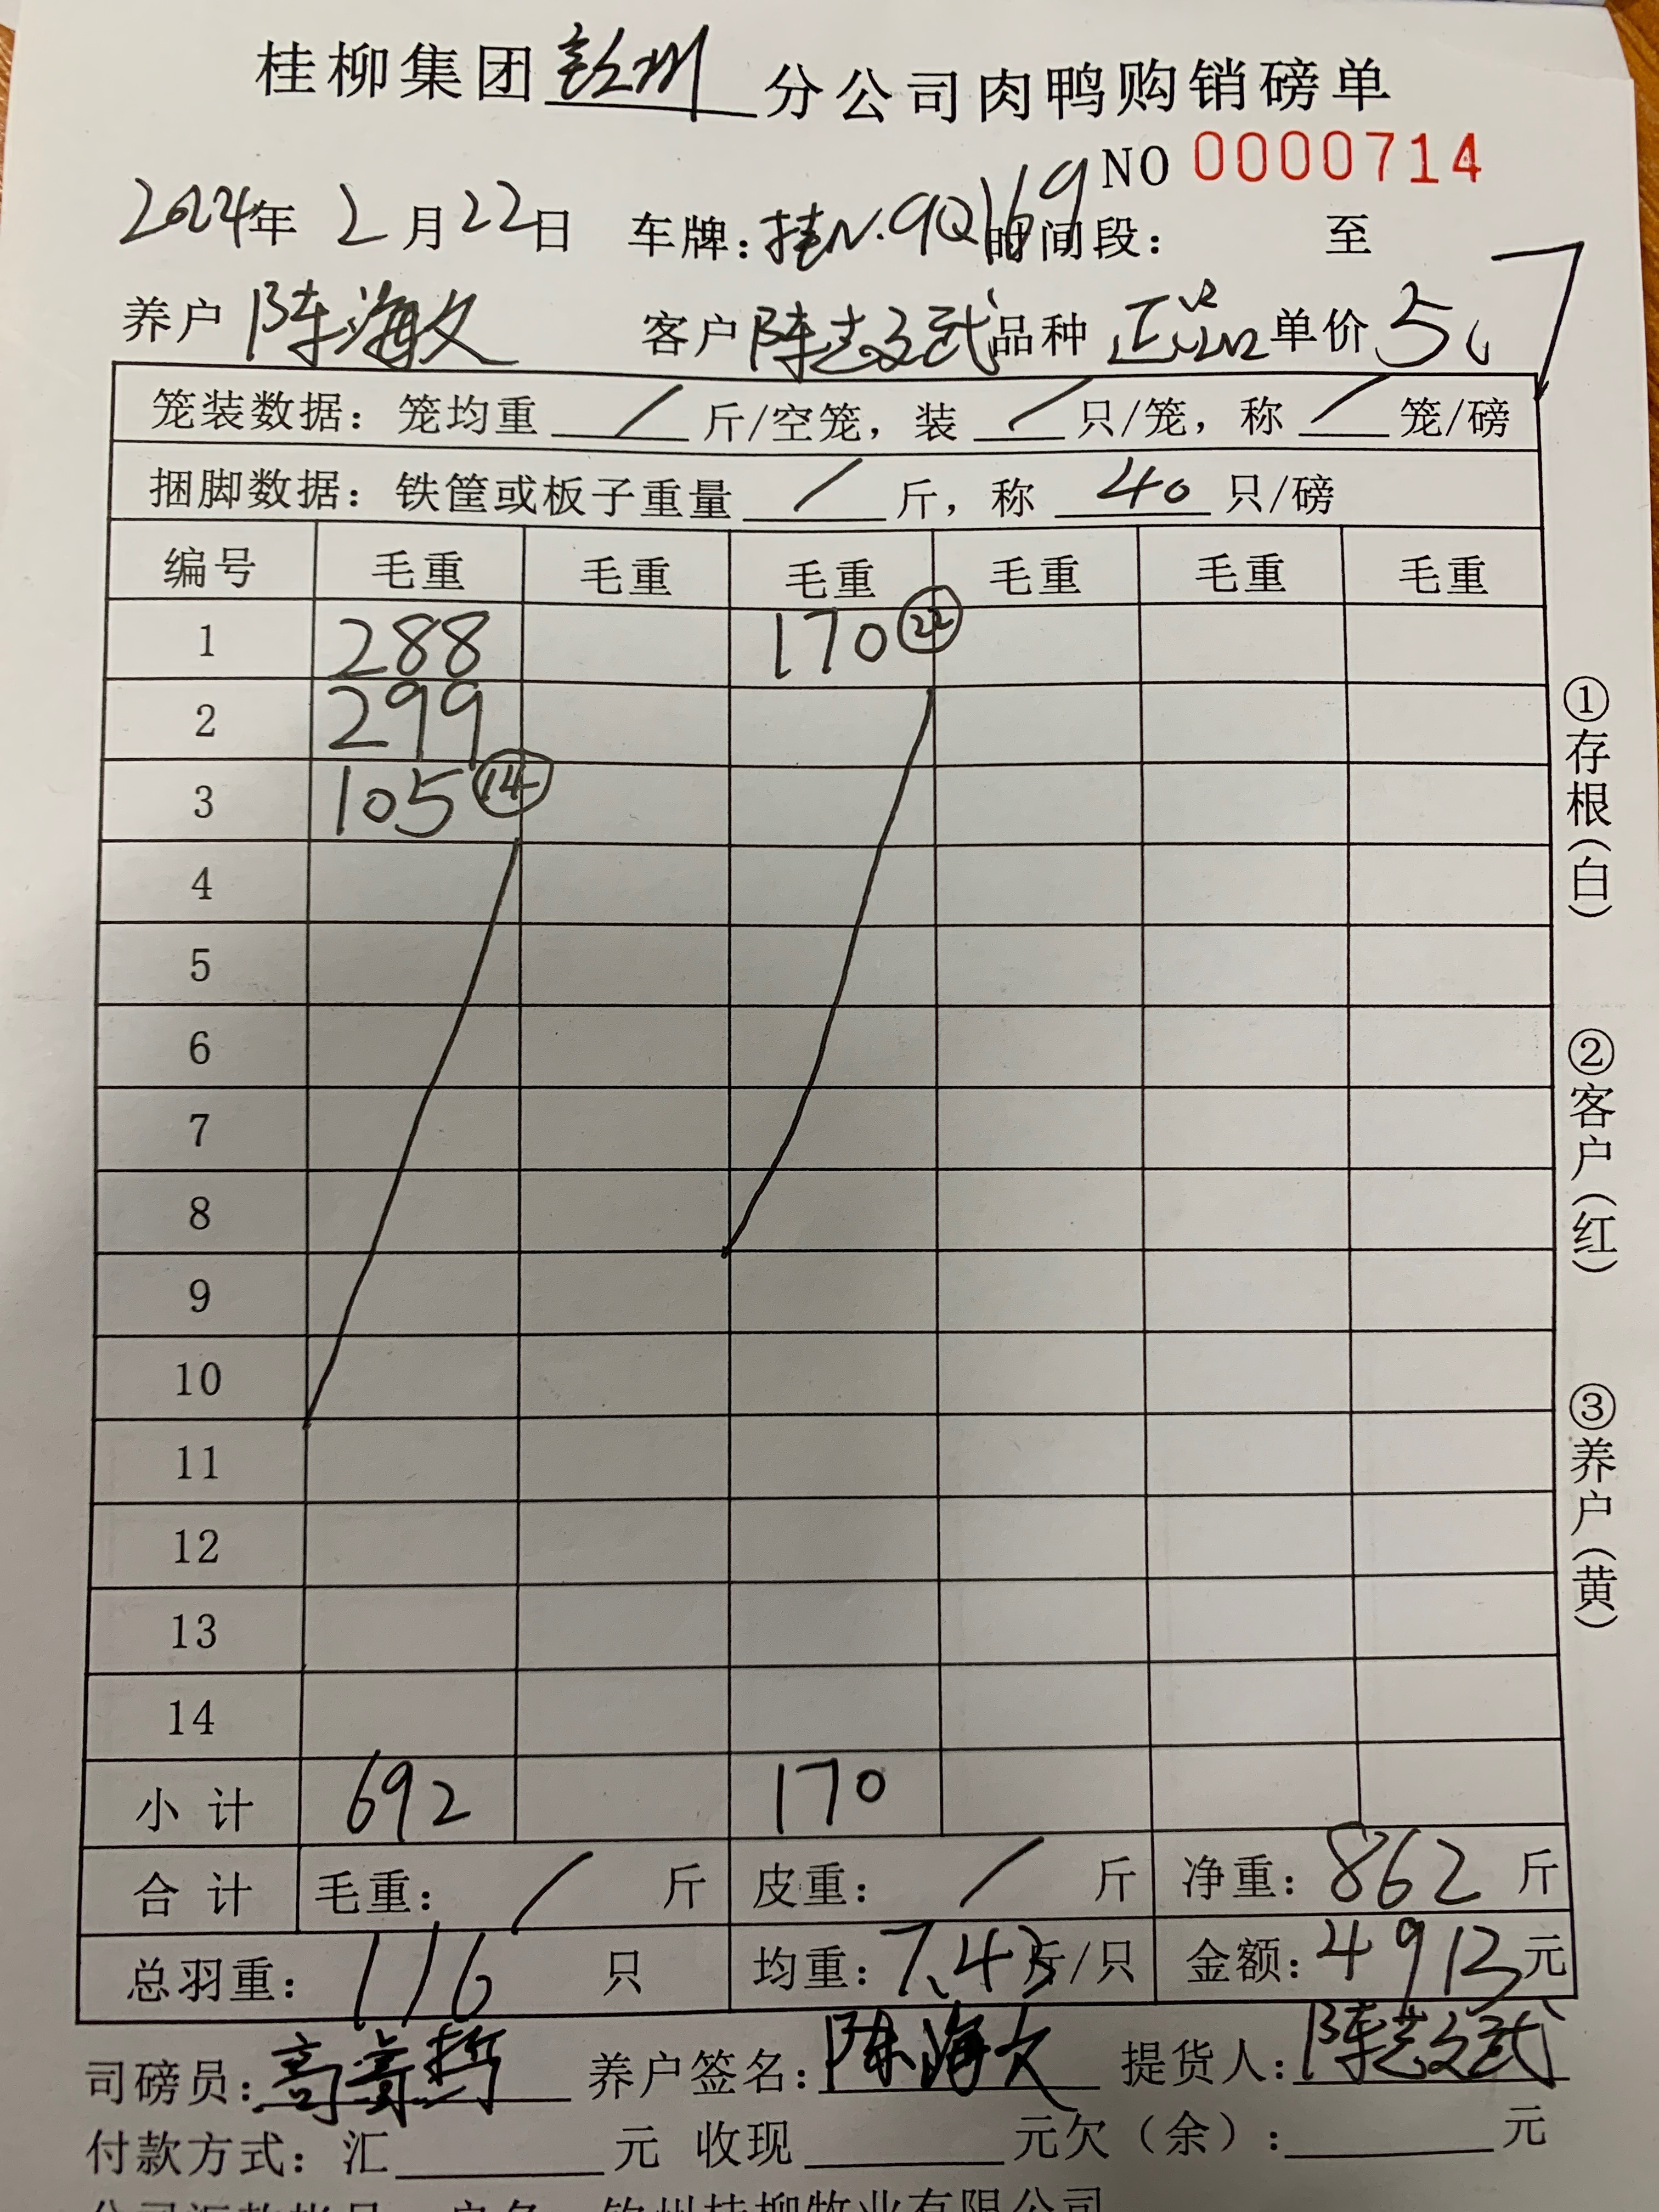 桂柳集团钦州分公司肉鸭购销磅单
NO 0000714
2024年 2月22日 车牌:桂N·9Q169 时间段: 至
养户 陈海文 客户 陈志武 品种 正品 单价 5.7
笼装数据: 笼均重 / 斤/空笼, 装 / 只/笼, 称 / 笼/磅
捆脚数据: 铁筐或板子重量 / 斤, 称 40 只/磅
编号 毛重 毛重 毛重 毛重 毛重 毛重
1 288 170 ㉒
2 299
3 105 ⑭
4
5
6
7
8
9
10
11
12
13
14
小计 692 170
合计 毛重: / 斤 皮重: / 斤 净重: 862 斤
总羽重: 116 只 均重: 7.43斤/只 金额: 4913元
司磅员: 养户签名: 陈海文 提货人: 陈志武
付款方式: 汇 元 收现 元欠(余): 元
①存根(白)
②客户(红)
③养户(黄)